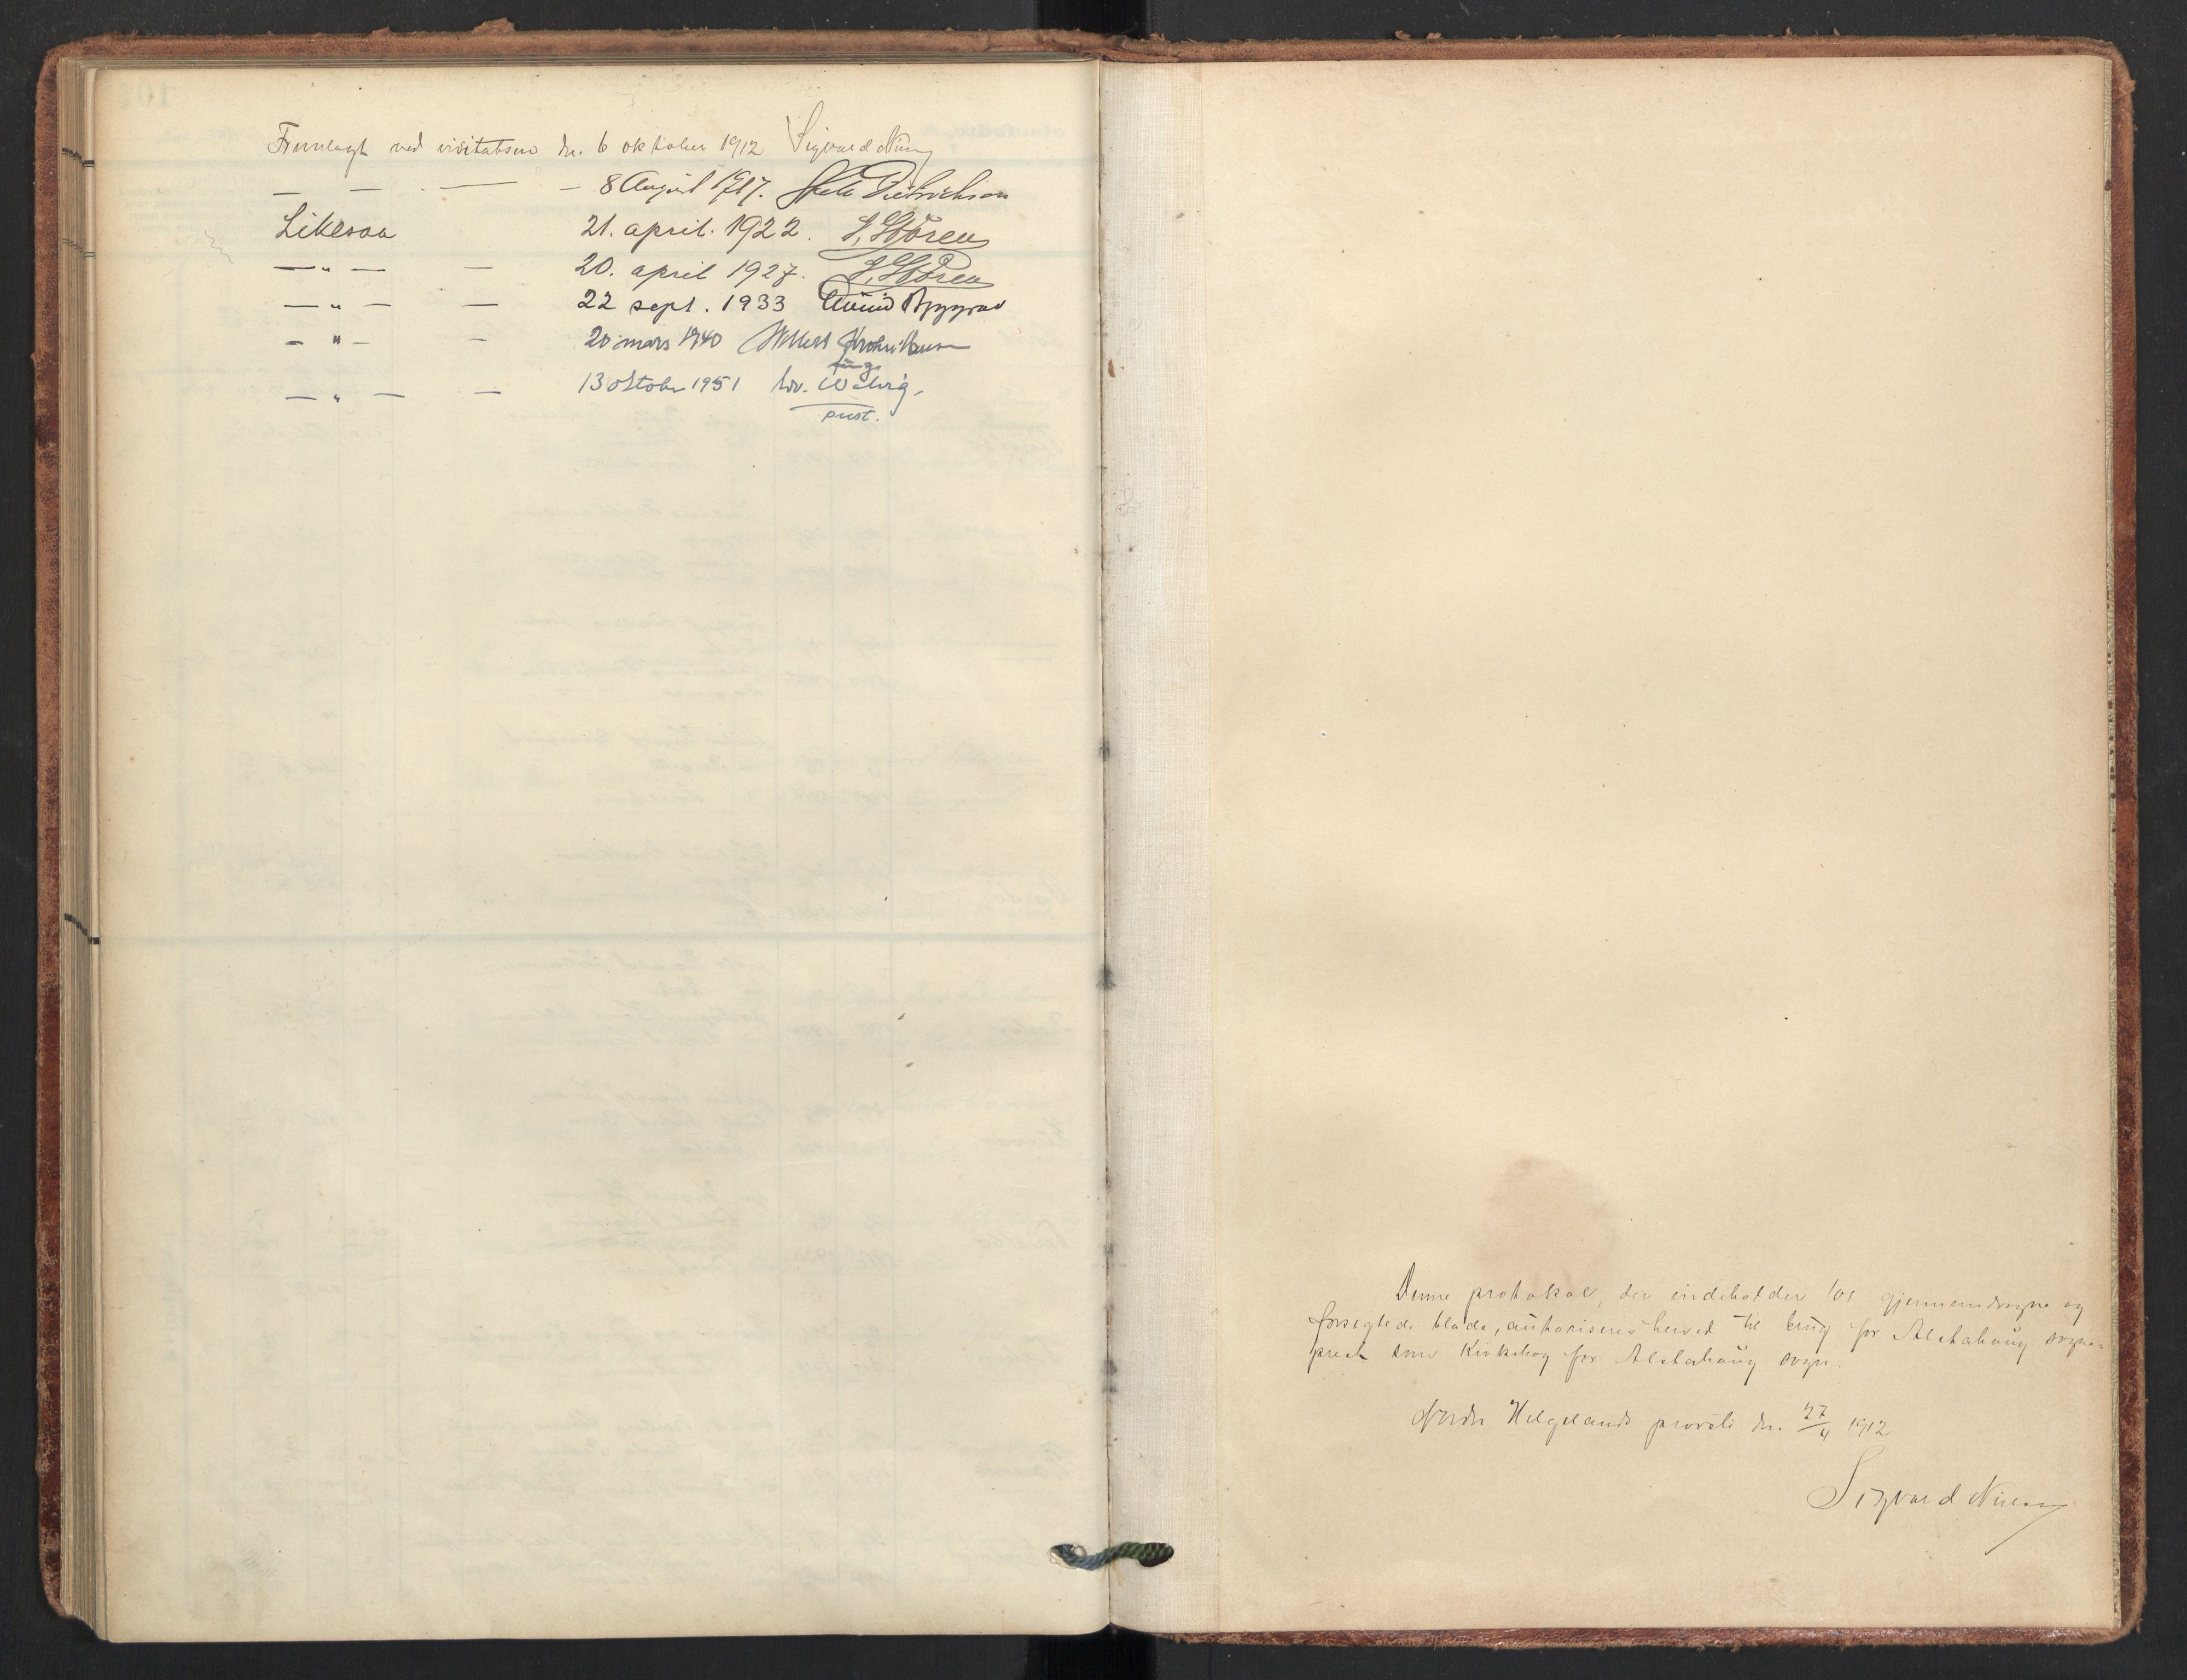 Fremlagt ved visitatsen dn. 6 oktober 1912 Sigvard Nielsen
— — — — 8 August 1917. Dietrichson
Likesaa 21. april. 1922. J. Støren
— " — — 20. april 1927. J. Støren
— " — — 22 sept. 1933 Eivind Berggrav
— " — — 20 mars 1940 Krohn Hansen
— " — — 13 oktober 1951 Wadrig.
prost.
Denne protokol, der indeholder 101 gjennemdragne og
forseglede blade, autoriseres herved til brug for Alstahaug sogne-
prest som Kirkebog for Alstahaug sogn.
Nordre Helgelands provsti dn. 27/4 1912
Sigvard Nielsen